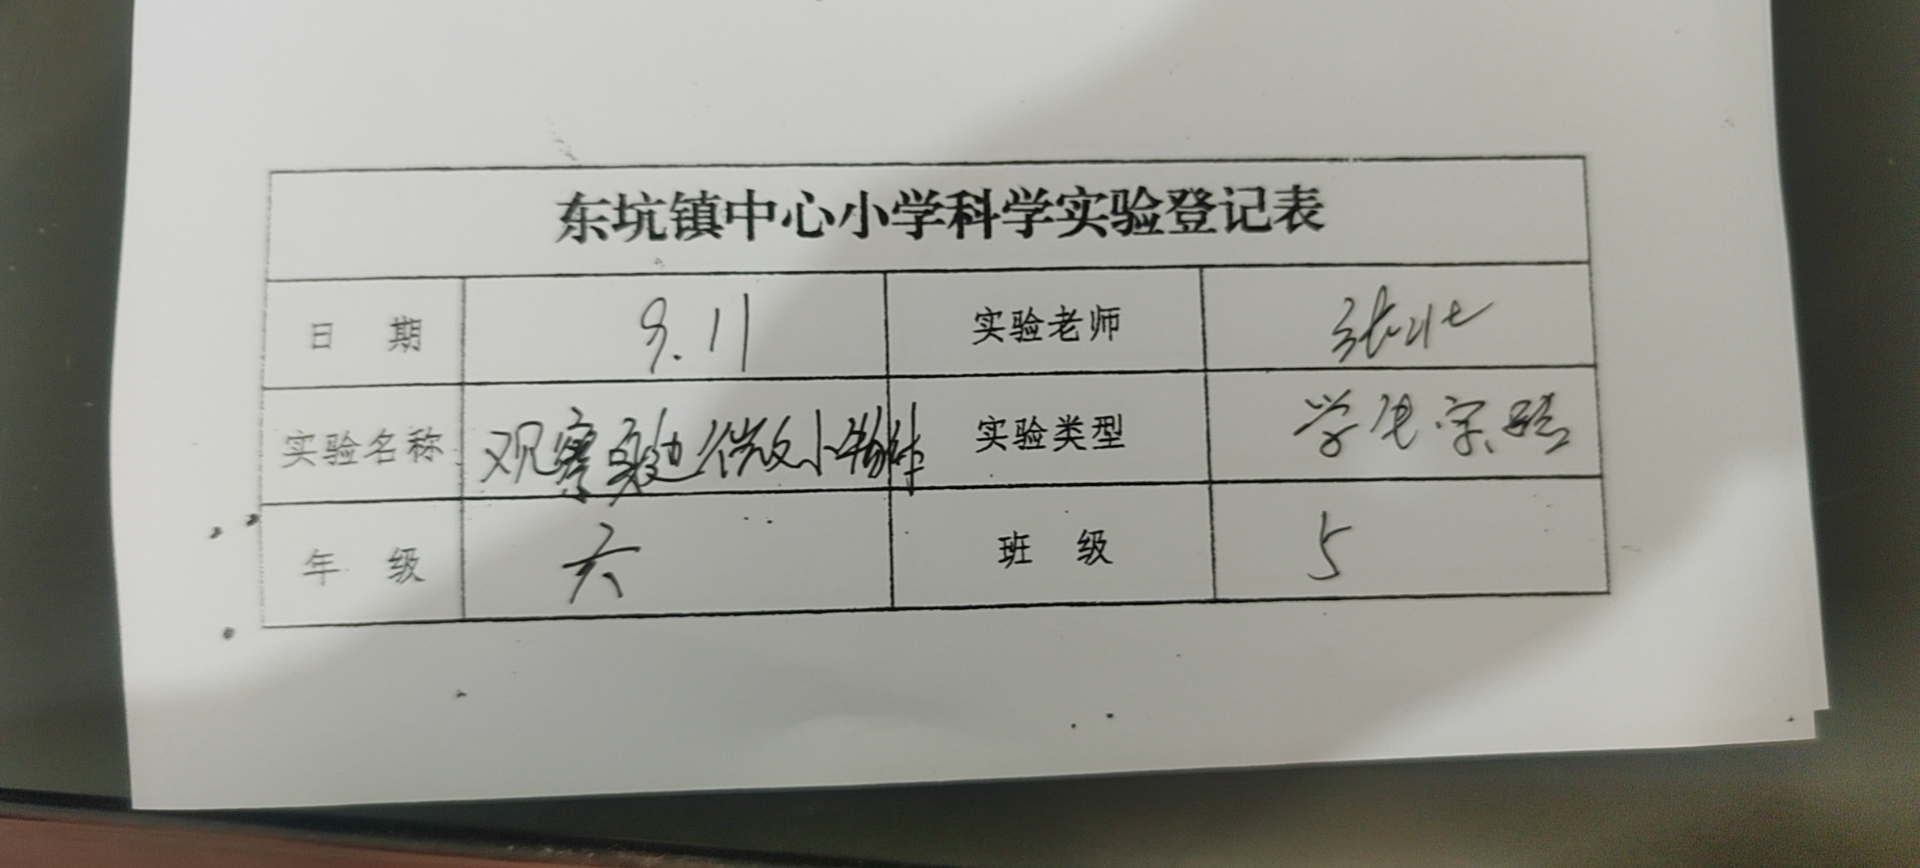 东坑镇中心小学科学实验登记表
日 期 9.11 实验老师
实验名称 观察身边微小物体 实验类型 学生实验
年 级 六 班 级 5